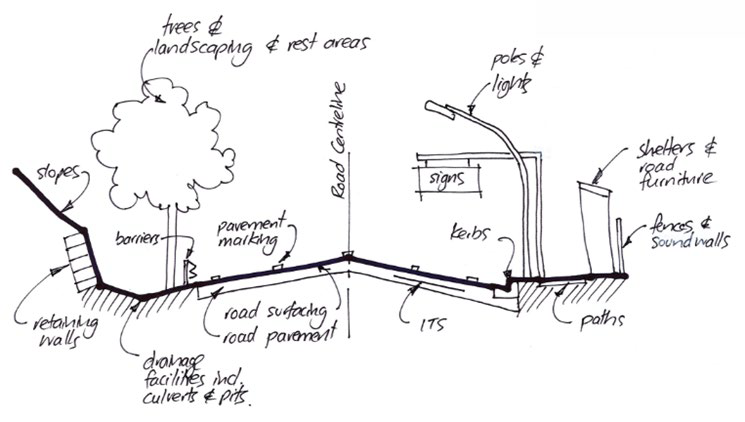 trees &
landscaping & rest areas
poles &
lights
Road Centreline
slopes
signs
shelters &
road
furniture
barriers
pavement
marking
kerbs
fences &
soundwalls
retaining
walls
road surfacing
road pavement
ITS
paths
drainage
facilities incl.
culverts & pits.